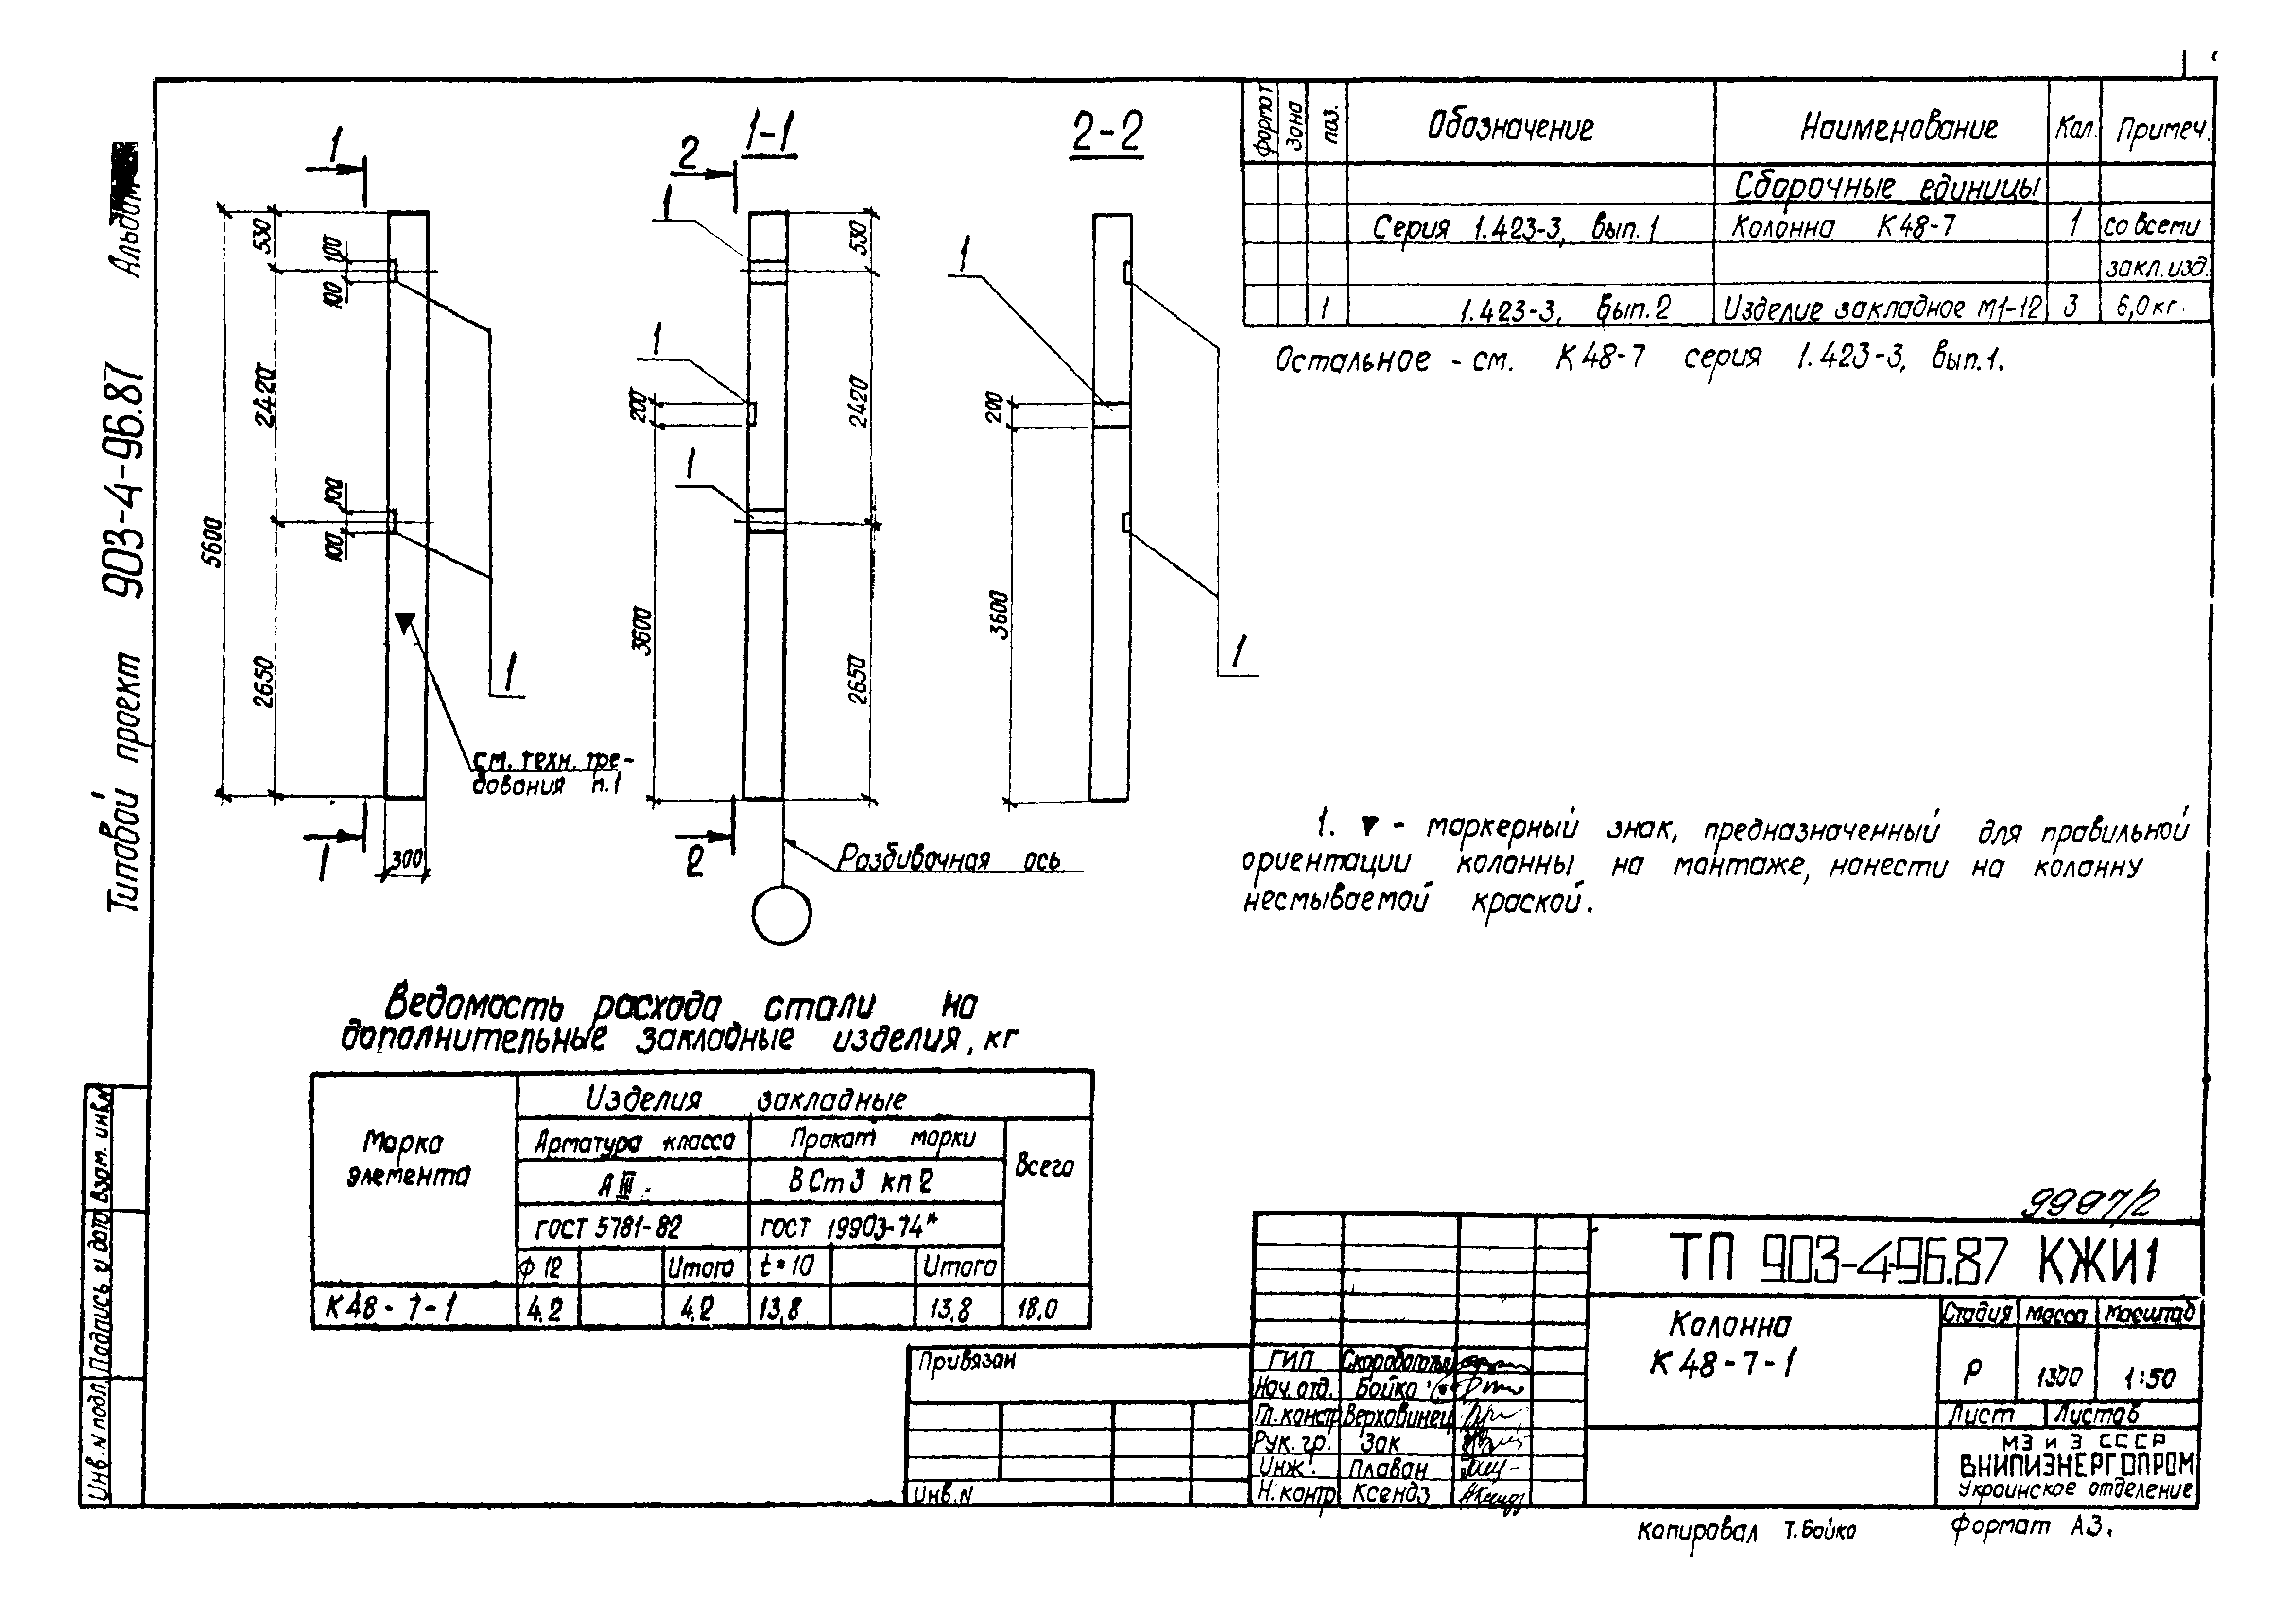 Типовой проект 903-4-96.87 Альбом
1
2
1-1
2-2
1
1
1
530
100
100
2420
100
100
5600
2650
1
см. техн. тре-
бования п.1
1
300
1
1
200
3600
530
2420
2650
2
Разбивочная ось
200
3600
1
Формат Зона поз. Обозначение Наименование Кол. Примеч.
Сборочные единицы
Серия 1.423-3, Вып.1 Колонна К48-7 1 со всеми
закл.изд.
1 1.423-3, Вып.2 Изделие закладное М1-12 3 6,0кг.
Остальное - см. К48-7 серия 1.423-3, вып.1.
1. ▼ - маркерный знак, предназначенный для правильной
ориентации колонны на монтаже, нанести на колонну
несмываемой краской.
Ведомость расхода стали на
дополнительные закладные изделия, кг
Марка элемента
Изделия закладные
Арматура класса Прокат марки Всего
А III ВСт3 кп2
ГОСТ 5781-82 ГОСТ 19903-74*
ф12 Итого t=10 Итого
К48-7-1 4.2 4.2 13,8 13,8 18,0
Инв.N подл. Подпись и дата Взам. инв.N
9997/2
ТП 903-4-96.87 КЖИ1
Колонна
К48-7-1
Стадия Масса Масштаб
Р 1300 1:50
Лист Листов
МЭ и Э СССР
ВНИПИЭНЕРГОПРОМ
Украинское отделение
Привязан
Инв.N
ГИП
Нач.отд. Бойко
Гл.констр Верховинец
Рук. гр. Зак
Инж. Плаван
Н.контр Ксендз
Копировал Т.Бойко Формат А3.